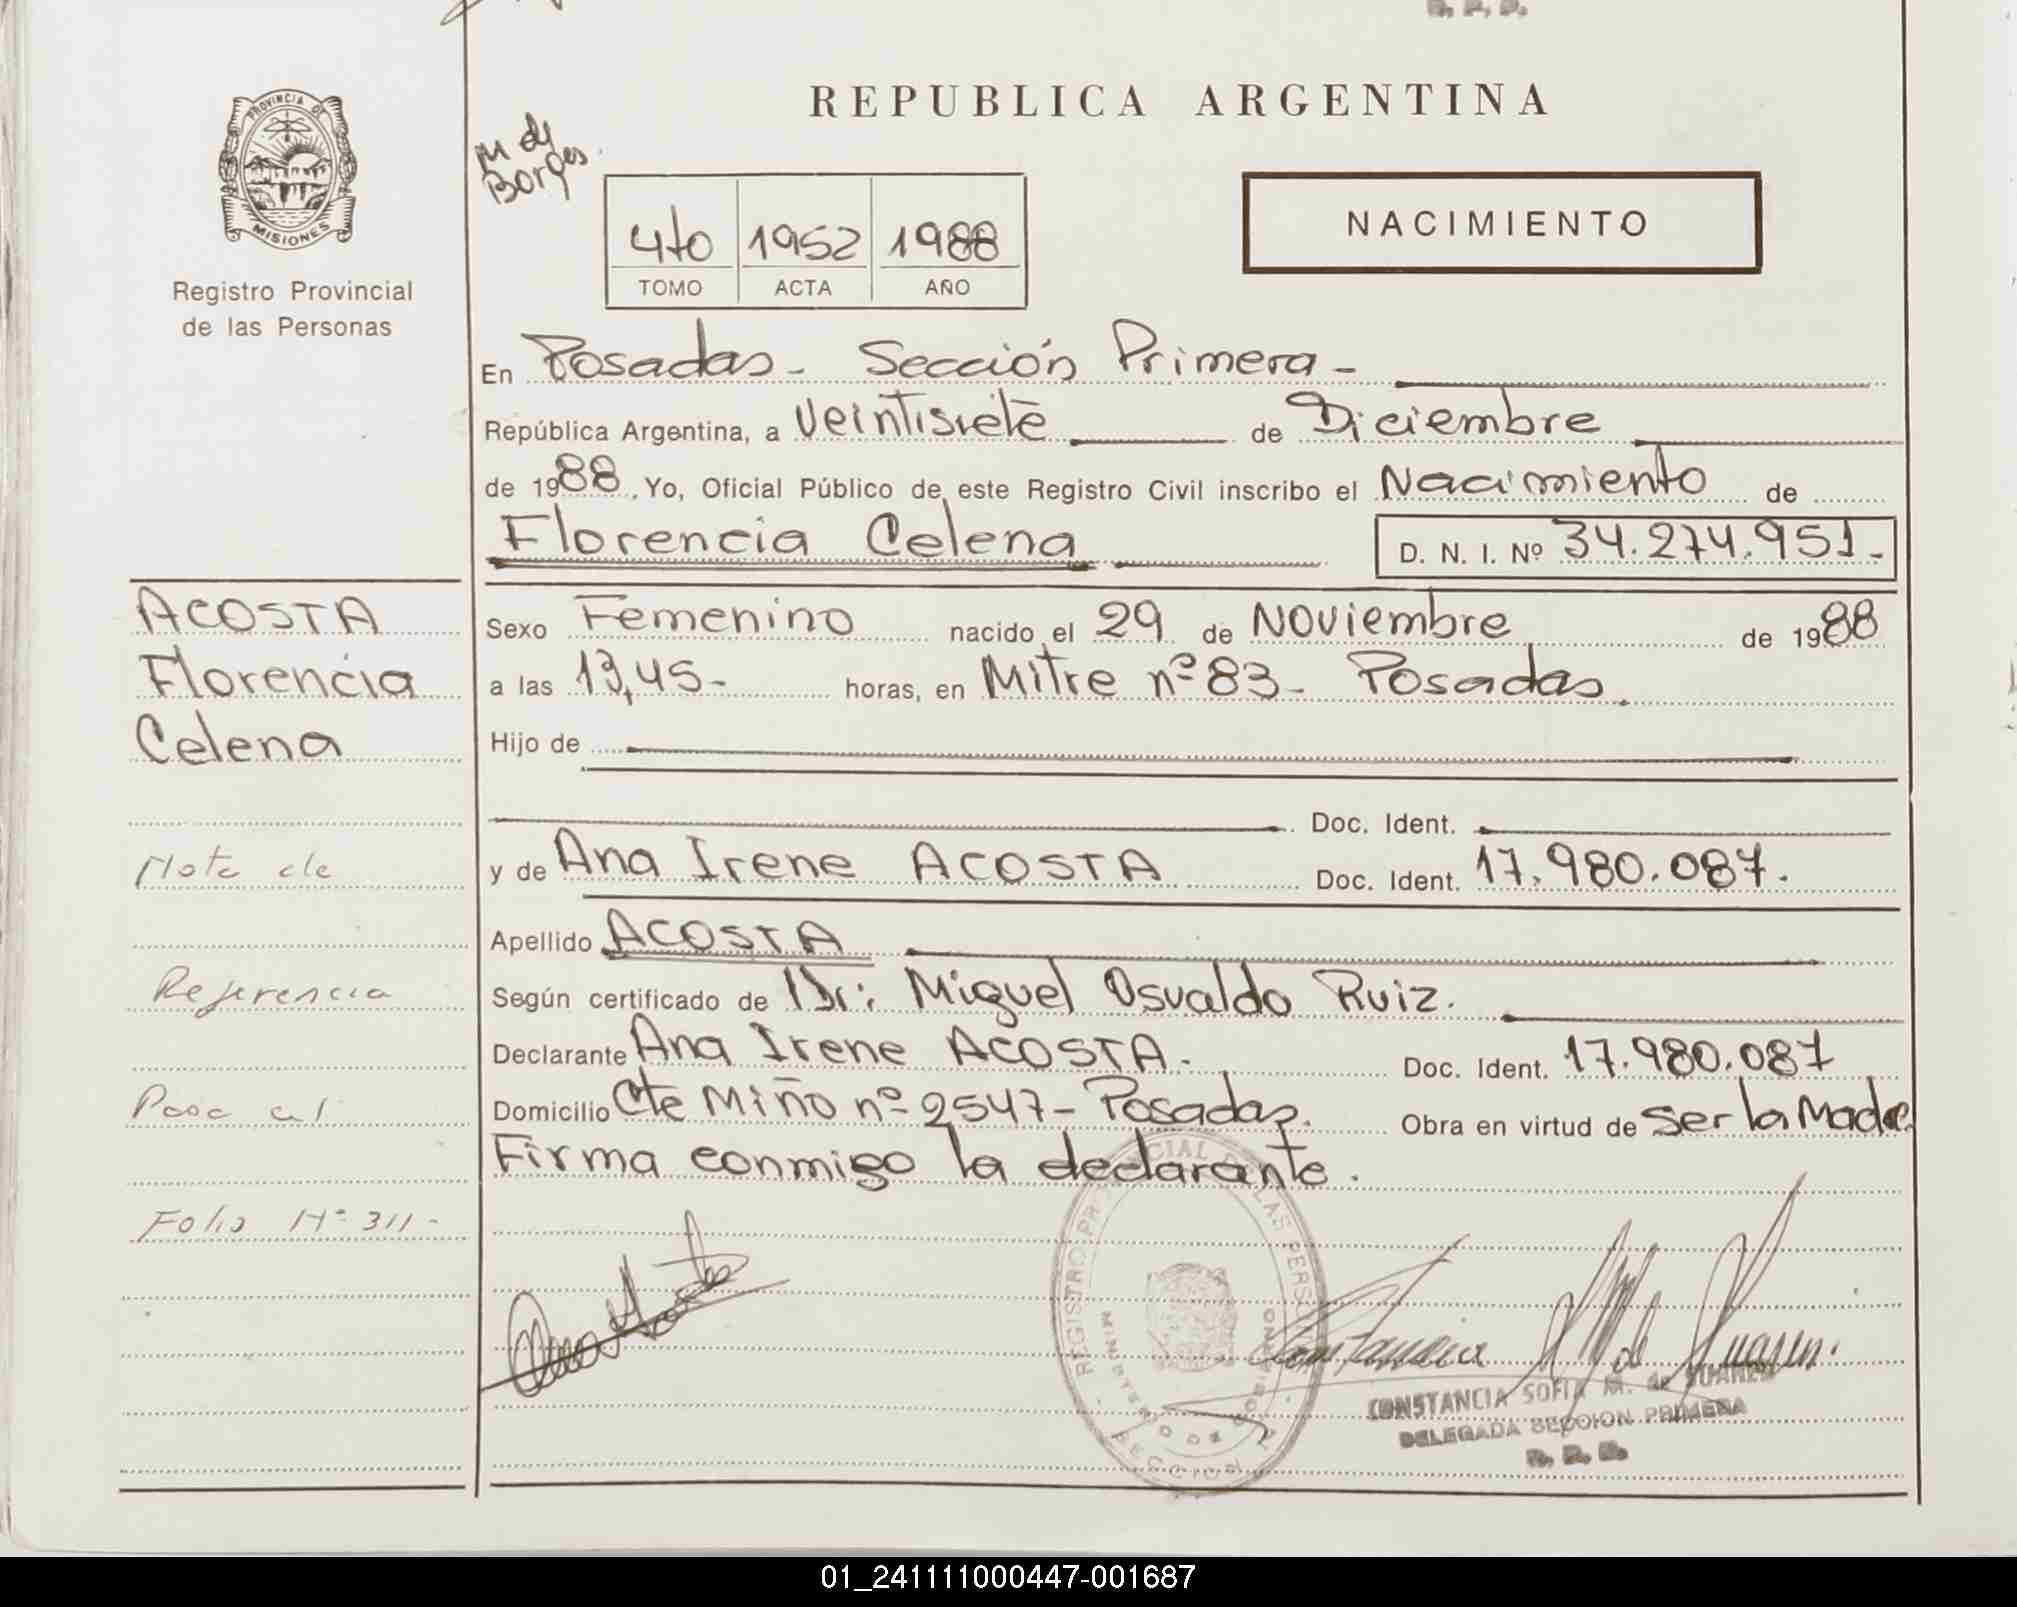 R. P. P.
PROVINCIA DE
MISIONES
Registro Provincial
de las Personas
REPUBLICA ARGENTINA
M de
Borges
4to 1952 1988
TOMO ACTA AÑO
NACIMIENTO
En Posadas - Sección Primera -
República Argentina, a veintisiete de Diciembre
de 1988, Yo, Oficial Público de este Registro Civil inscribo el Nacimiento de
Florencia Celena D. N. I. Nº 34.274.951.-
ACOSTA
Florencia
Celena
Sexo Femenino nacido el 29 de Noviembre de 1988
a las 13,45- horas, en Mitre nº 83 - Posadas.
Hijo de
Doc. Ident.
y de Ana Irene ACOSTA Doc. Ident. 17.980.087.
Apellido ACOSTA
Según certificado de Dr: Miguel Osvaldo Ruiz.
Declarante Ana Irene ACOSTA. Doc. Ident. 17.980.087
Domicilio Cte Miño nº 2547 - Posadas. Obra en virtud de ser la Madre.
Firma conmigo la declarante.
Nota de
Referencia
Pasa al
Folio Nº 311-
Ana Acosta
REGISTRO PROVINCIAL DE LAS PERSONAS
MINISTERIO DE GOBIERNO
Constancia S M de Suarez.
CONSTANCIA SOFIA M. de SUAREZ
DELEGADA SECCION PRIMERA
R. P. P.
01_241111000447-001687